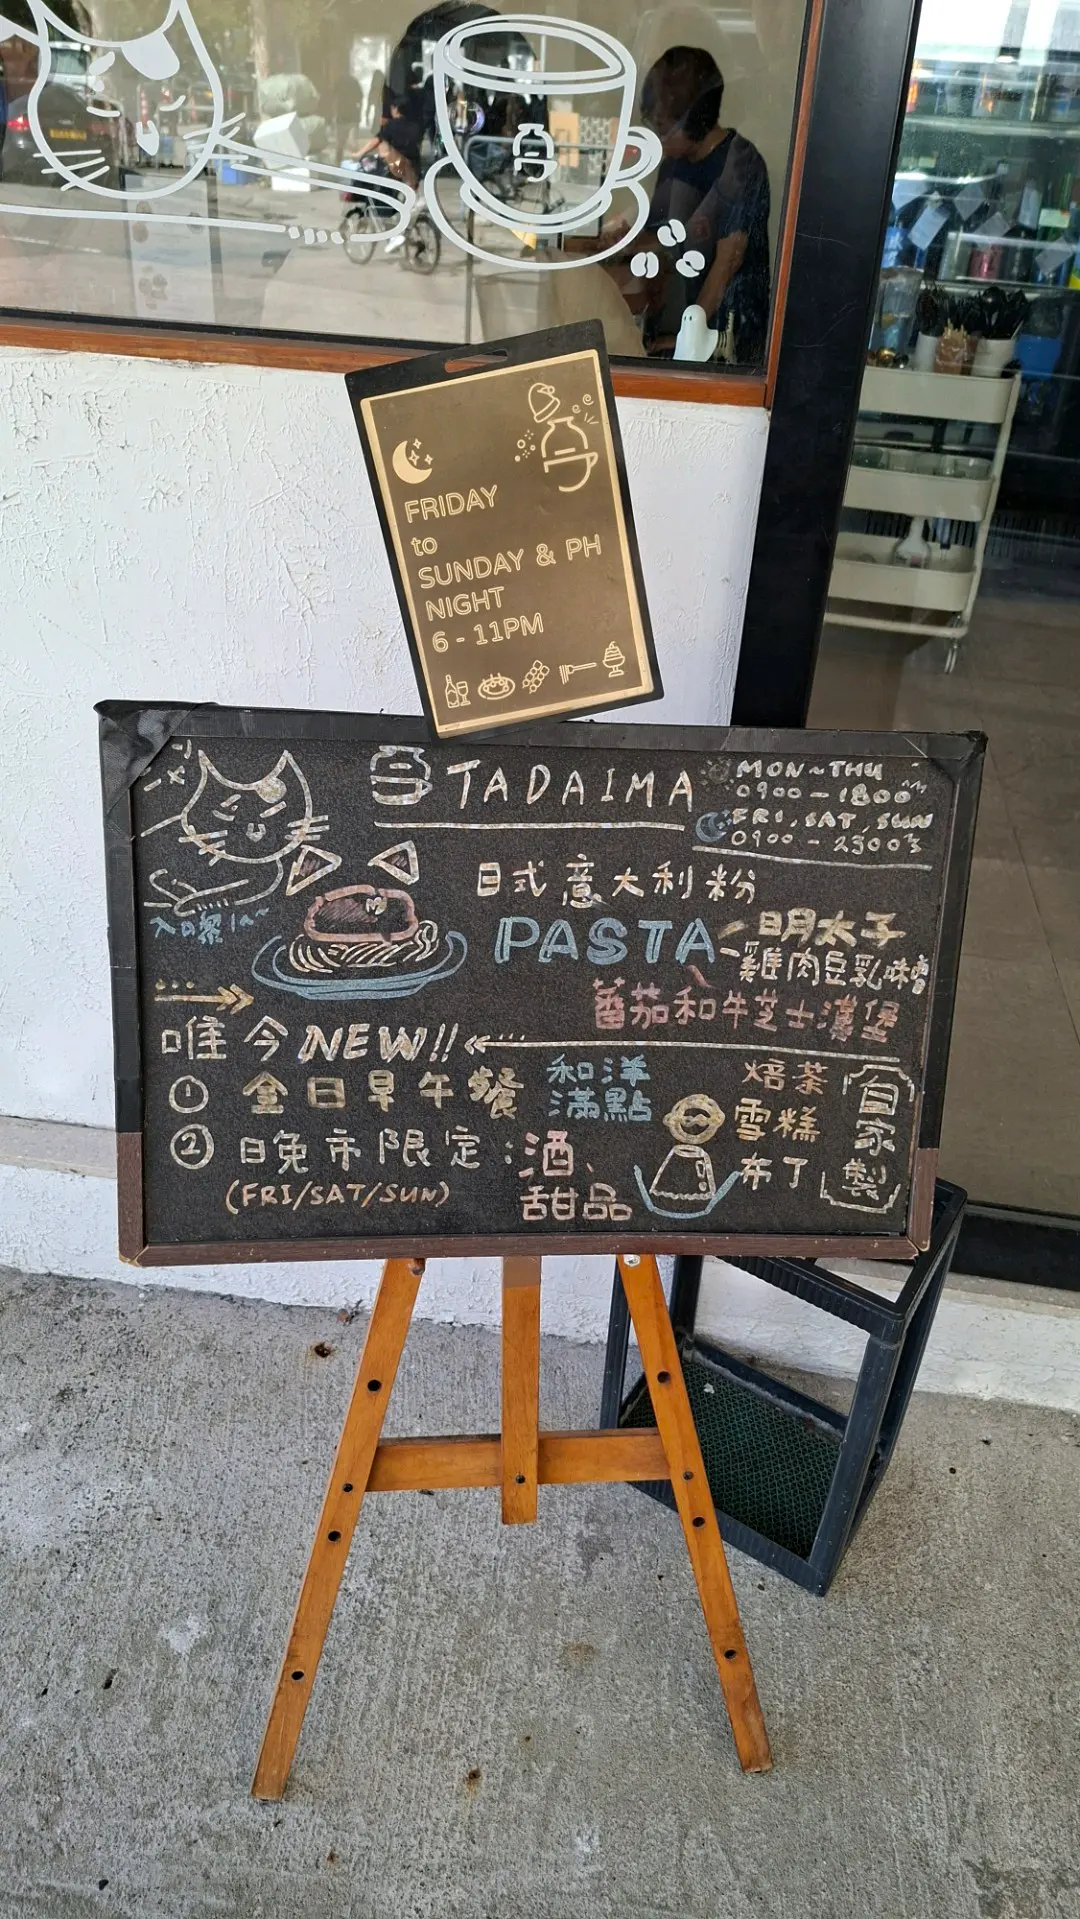 FRIDAY
to
SUNDAY & PH
NIGHT
6 - 11PM
TADAIMA
MON~THU
0900-1800
FRI, SAT, SUN
0900-2300
日式意大利粉
PASTA
明太子
雞肉豆乳味噌
蕃茄和牛芝士漢堡
入口黎la~
唯今NEW!!
① 全日早午餐
和洋
滿點
② 日晚市限定:酒、
甜品
(FRI/SAT/SUN)
焙茶
雪糕
布丁
自家製